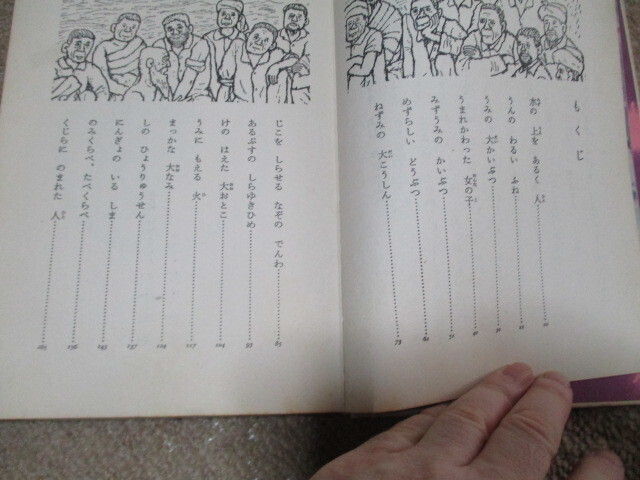 もくじ
水の 上を あるく 人
うんの わるい ふね
うみの 大かいぶつ
うまれかわった 女の子
みずうみの かいぶつ
めずらしい どうぶつ
ねずみの 大こうしん 73
じこを しらせる なぞの でんわ
あるぷすの しらゆきひめ
けの はえた 大おとこ 104
うみに もえる 火 117
まっかな 大なみ 124
しの ひょうりゅうせん 137
にんぎょの いる しま
のみくらべ、たべくらべ
くじらに のまれた 人